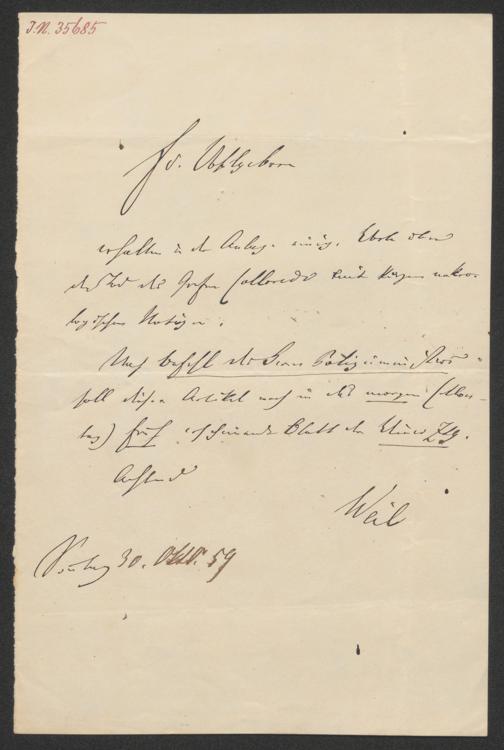 J.N. 35685
Ew. Wohlgeboren
erhalten in der Anlage einige Worte über
den Tod des Grafen Colloredo mit kurzen nekro-
logischen Notizen.
Nach Befehl des Herrn Polizeiministers
soll dieser Artikel noch in das morgen (Mon-
tag) früh erscheinende Blatt der Wiener Ztg.
Achtend
Weil
Sonntag 30. Okto. 59